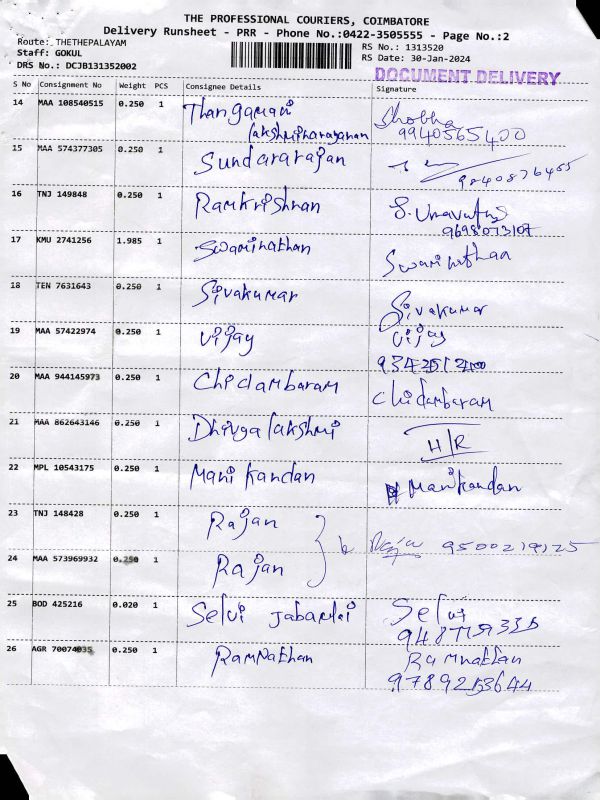 THE PROFESSIONAL COURIERS, COIMBATORE
Delivery Runsheet - PRR - Phone No.:0422-3505555 - Page No.:2
Route: THETHEPALAYAM
Staff: GOKUL
DRS No.: DCJB131352002
RS No.: 1313520
RS Date: 30-Jan-2024
DOCUMENT DELIVERY
S No Consignment No Weight PCS Consignee Details Signature
14 MAA 108540515 0.250 1 Thangamani Shobha
Lakshminarayanan 9940565400
15 MAA 574377305 0.250 1 Sundararajan
9840876455
16 TNJ 149848 0.250 1 Ramkrishnan
9698073107
17 KMU 2741256 1.985 1 Swaminathan Swaminathan
18 TEN 7631643 0.250 1 Sivakumar Sivakumar
19 MAA 57422974 0.250 1 Vijay Vijay
20 MAA 944145973 0.250 1 Chidambaram Chidambaram
21 MAA 862643146 0.250 1 Dhivya lakshmi H/R
22 MPL 10543175 0.250 1 Mani kandan Manikandan
23 TNJ 148428 0.250 1 Rajan
Raja 9500219125
24 MAA 573969932 0.250 1 Rajan
25 BOD 425216 0.020 1 Selvi Selvi
26 AGR 70074035 0.250 1 Ramnathan Ramnathan
9789253644